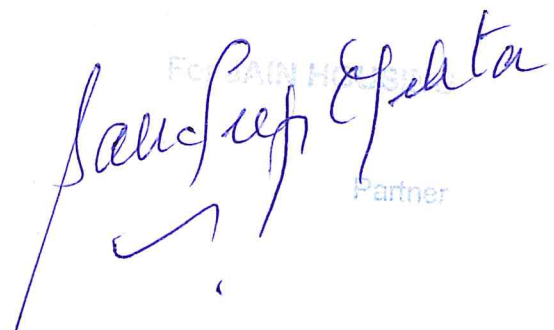 For JAIN HOUSING
Sandeep Mehta
Partner